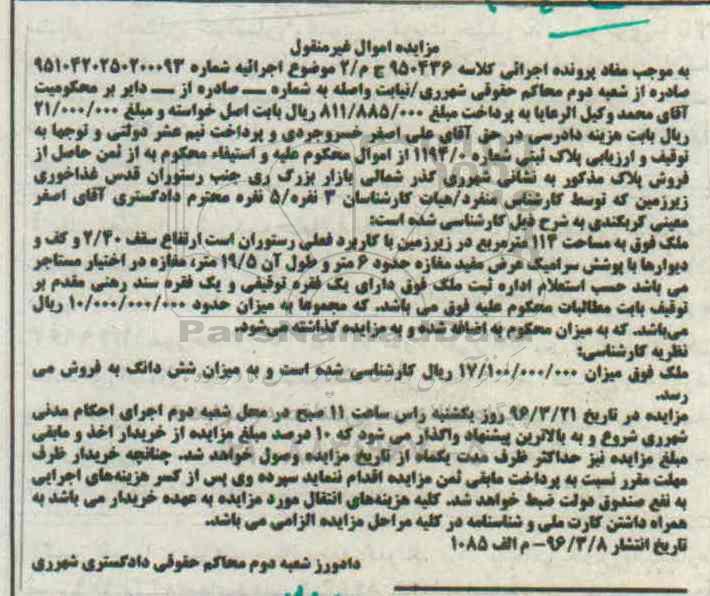 مزایده اموال غیرمنقول
به موجب مفاد پرونده اجرائی کلاسه ۹۵۰۴۳۶ ج م/۲ موضوع اجرائیه شماره ۹۵۱۰۴۲۰۲۵۰۲۰۰۰۹۳
صادره از شعبه دوم محاکم حقوقی شهرری/نیابت واصله به شماره ـــ صادره از ـــ دایر بر محکومیت
آقای محمد وکیل الرعایا به پرداخت مبلغ ۸۱۱/۸۸۵/۰۰۰ ریال بابت اصل خواسته و مبلغ ۲۱/۰۰۰/۰۰۰
ریال بابت هزینه دادرسی در حق آقای علی اصغر خسروجردی و پرداخت نیم عشر دولتی و توجها به
توقیف و ارزیابی پلاک ثبتی شماره ۱۱۹۴/۰ از اموال محکوم علیه و استیفاء محکوم به از ثمن حاصل از
فروش پلاک مذکور به نشانی شهرری گذر شمالی بازار بزرگ ری جنب رستوران قدس غذاخوری
زیرزمین که توسط کارشناس منفرد/هیات کارشناسان ۳ نفره/۵ نفره محترم دادگستری آقای اصغر
معینی کربکندی به شرح ذیل کارشناسی شده است:
ملک فوق به مساحت ۱۱۴ مترمربع در زیرزمین با کاربرد فعلی رستوران است ارتفاع سقف ۲/۴۰ و کف و
دیوارها با پوشش سرامیک عرض مفید مغازه حدود ۶ متر و طول آن ۱۹/۵ متر، مغازه در اختیار مستاجر
می باشد حسب استعلام اداره ثبت ملک فوق دارای یک فقره توقیفی و یک فقره سند رهنی مقدم بر
توقیف بابت مطالبات محکوم علیه فوق می باشد. که مجموعا به میزان حدود ۱۰/۰۰۰/۰۰۰/۰۰۰ ریال
می‌باشد. که به میزان محکوم به اضافه شده و به مزایده گذاشته می‌شود.
نظریه کارشناسی:
ملک فوق میزان ۱۷/۱۰۰/۰۰۰/۰۰۰ ریال کارشناسی شده است و به میزان شش دانگ به فروش می
رسد.
مزایده در تاریخ ۹۶/۳/۲۱ روز یکشنبه راس ساعت ۱۱ صبح در محل شعبه دوم اجرای احکام مدنی
شهرری شروع و به بالاترین پیشنهاد واگذار می شود که ۱۰ درصد مبلغ مزایده از خریدار اخذ و مابقی
مبلغ مزایده نیز حداکثر ظرف مدت یکماه از تاریخ مزایده وصول خواهد شد. چنانچه خریدار ظرف
مهلت مقرر نسبت به پرداخت مابقی ثمن مزایده اقدام ننماید سپرده وی پس از کسر هزینه‌های اجرایی
به نفع صندوق دولت ضبط خواهد شد. کلیه هزینه‌های انتقال مورد مزایده به عهده خریدار می باشد به
همراه داشتن کارت ملی و شناسنامه در کلیه مراحل مزایده الزامی می باشد.
تاریخ انتشار ۹۶/۳/۸- م الف ۱۰۸۵
دادورز شعبه دوم محاکم حقوقی دادگستری شهرری
ParsNamadData